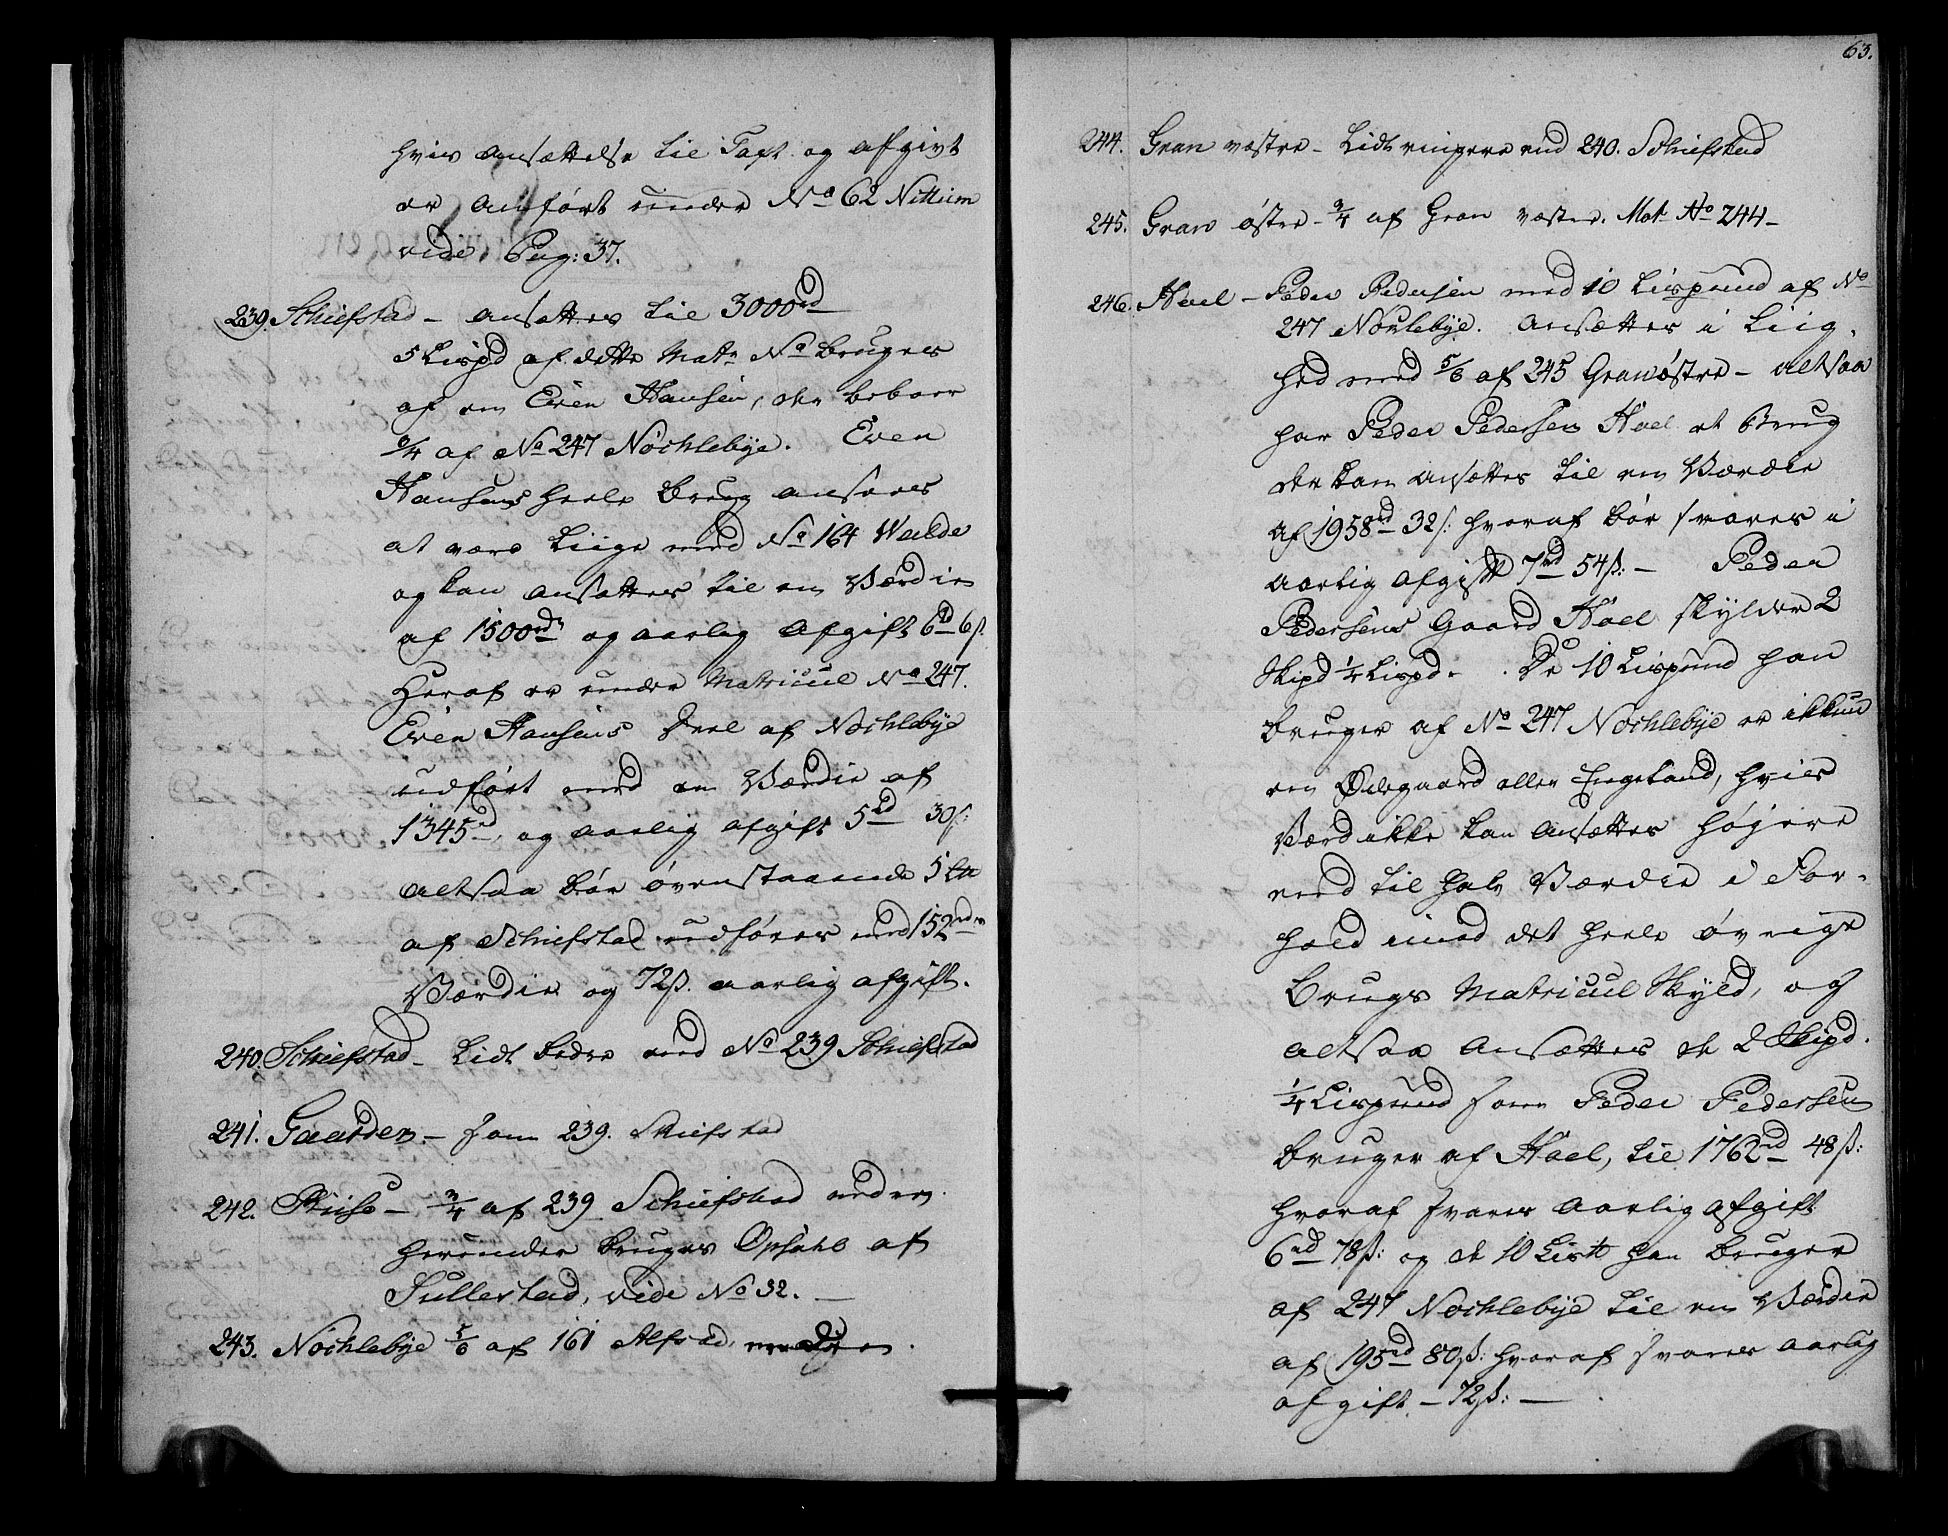 hvis ansættelse til Taxt og afgivt
er anført under No 62 Nittium
vide Pag: 37.
239. Schiefstad – ansættes til 3000rd
5 Lispd af dette Matr No bruges
af en Even Hansen, der beboer
af No 247 Nöchlebÿe. Even
Hansens heele Brug ansees
at være Liige med No 164 Weilde
og kan ansættes til en Værdie
af 1500rd og aarlig Afgift 6rd 6ß.
Heraf er under Matricul No 247.
Even Hansens Deel af Nochlebÿe
udført med en Værdie af
1345rd, og aarlig afgift 5rd 30ß:
altsaa bør ovenstaaende 5 Ltt
af Schiefstad udføres med 152rd
Værdie og 72ß. aarlig afgift.
240. Schiefstad – Lidt bedre end No 239 Schiefstad
241. Gaarder – som 239. Skiefstad
242. Riise – 3/4 af 239 Schiefstad
herunder bruges Opsahl af
Sullestad, vide No 32. –
243. Nöchlebÿe 5/6 af 161 Alfstad
63.
244. Gran vestre – Lidt ringere end 240. Schiefstad
245. Gran østre – 3/4 af Gran vestre. Mat No 244 –
246. Hoel – Peder Pedersen med 10 Lispund af No
247 Nöchlebÿe. Ansættes i Liig-
hed med 5/6 af 245 Gran østre – altsaa
har Peder Pedersen Hoel et Brug
der kan ansættes til en Værdie
af 1958rd 32ß: hvoraf bør svares i
aarlig afgift 7rd 54ß: – Peder
Pedersens Gaard Hoel skylder 2
Skipd 1/4 Lispd. De 10 Lispund han
bruger af No 247 Nochlebÿe er ikkun
en Ødegaard eller Engeland, hvis
Værd ikke kan ansættes højere
end til halv Værdie i For-
hold imod det heele øvrige
Brugs Matricul Skÿld, og
altsaa ansættes de 2 Skipd.
1/4 Lispund som Peder Pedersen
bruger af Hoel, til 1762rd 48ß:
hvoraf svares aarlig afgift
6rd 78ß: og de 10 Lisp han bruger
af 247 Nochlebÿe til en Værdie
af 195rd 80ß: hvoraf svares aarlig
afgift – 72ß: –